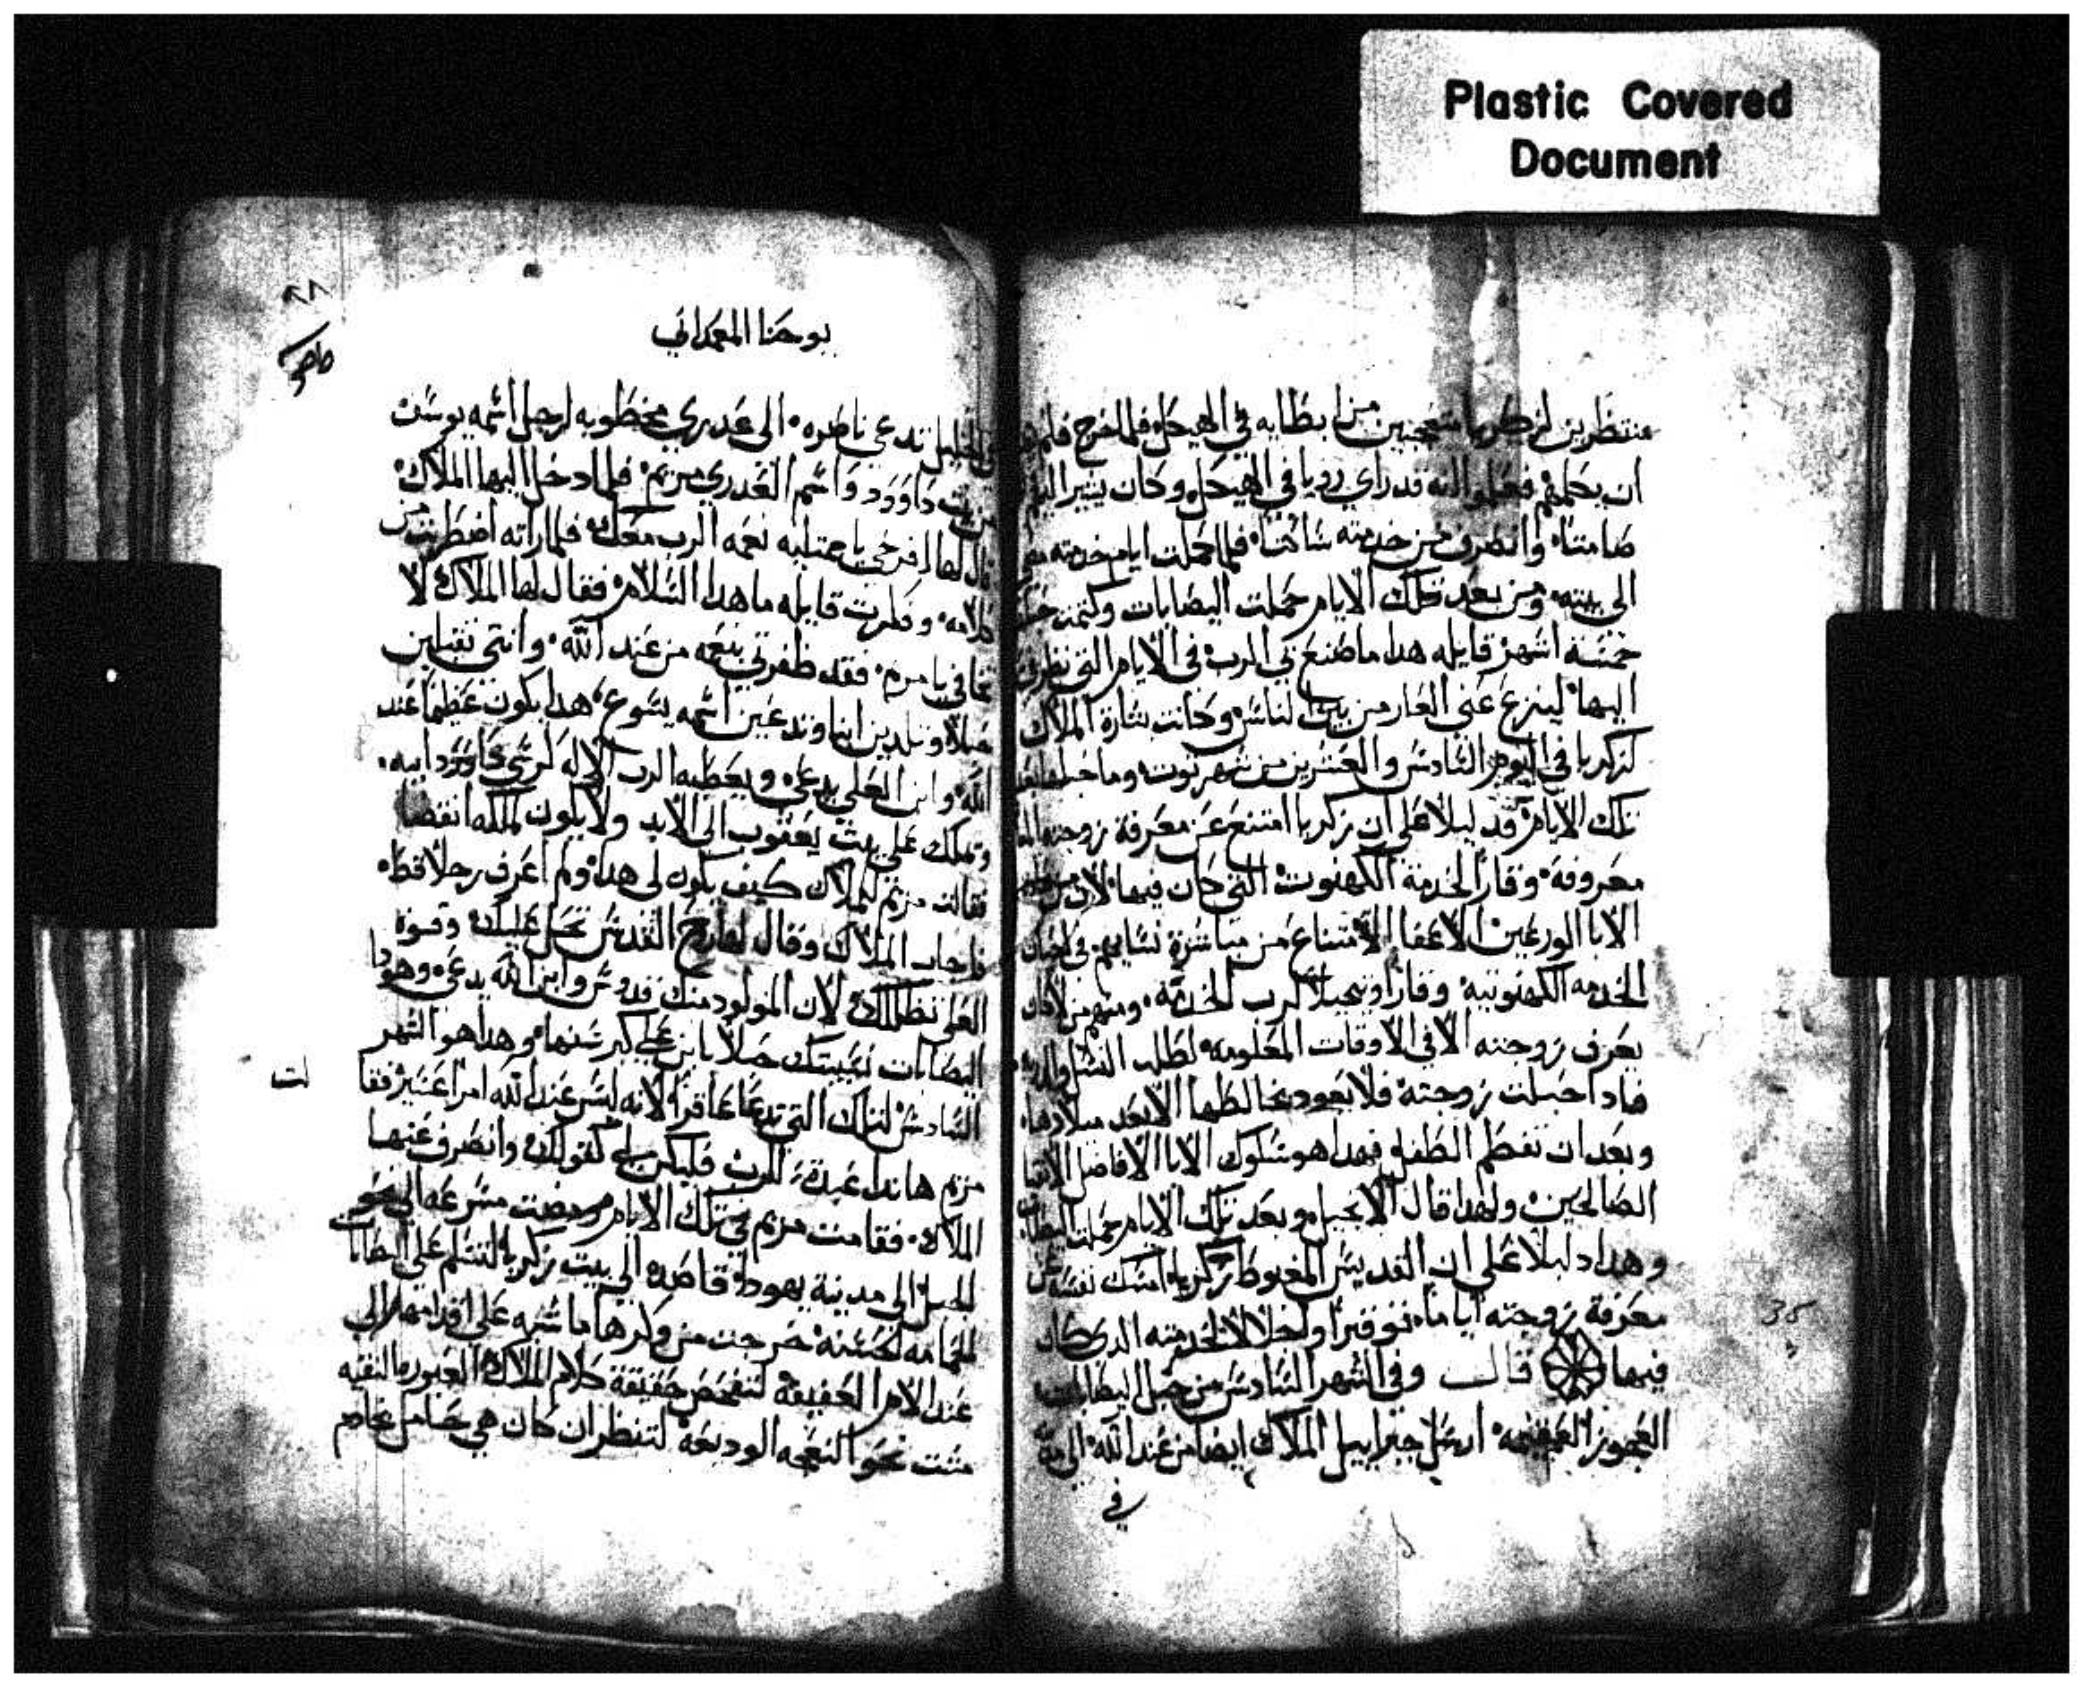 Plastic Covered
Document
منتظرين لزكريا متعجبين من ابطايه في الهيكل فلما خرج فلم
ان يكلمهم فعلموا انه قد راي رويا في الهيكل وكان يشير اليهم
صامتا وانصرف من خدمته ساكتا فلما كملت ايام خدمته مضي
الى بيته ومن بعد تلك الايام حملت اليصابات وكتمت حبلها
خمسة اشهر قايله هدا ما صنع بي الرب في الايام التي نظر
اليها لينزع عني العار من بين الناس وكانت بشارة الملاك
لزكريا في اليوم السادس والعشرين من شهر توت وما حبلها بعد
تلك الايام دليلا على ان زكريا امتنع عن معرفة زوجته
معروفة وقارا لخدمة الكهنوت التي كان فيها لان
الابا الورعين الاعفا الامتناع من مباشرة نسايهم في
الخدمه الكهنوتيه وقارا وتبجيلا لرب الخدمة ومنهم من لا كان
يعرف زوجته الا في الاوقات المعلومه لطلب النسل
فادا حبلت زوجته فلا يعود يخالطها الا بعد ميلادها
وبعد ان تفطم الطفل فهدا هو سلوك الابا الافاضل الاتقيا
الصالحين ولهدا قال الانجيل وبعد تلك الايام حملت
وهدا دليلا على ان القديس المغبوط زكريا امسك نفسه عن
معرفة زوجته اياما توقيرا واجلالا لخدمته الدي كان
فيها قالت وفي الشهر السادس من حبل اليصابات
العجوز العقيمه ارسل جبراييل الملاك ايضا من عند الله الى مدينة
في
35
٢٨
يوحنا المعمداني
الجليل تدعي ناصره الى عدري مخطوبه لرجل اسمه يوسف
من بيت داوود واسم العدري مريم فلما دخل اليها الملاك
قال لها افرحي يا ممتليه نعمه الرب معك فلما راته اضطربت من
كلامه وفكرت قايله ما هدا السلام فقال لها الملاك لا
تخافي يا مريم فقد ظفرتي بنعمه من عند الله وانتي تقبلين
حبلا وتلدين ابنا وتدعين اسمه يسوع هدا يكون عظيما عند
الله وابن العلي يدعى ويعطيه الرب الاله كرسي داوود ابيه
وتملك على بيت يعقوب الى الابد ولا يكون لملكه انقضا
فقالت مريم للملاك كيف يكون لي هدا ولم اعرف رجلا قط
فاجاب الملاك وقال لها روح القدس تحل عليك وقوة
العلي تظللك لان المولود منك قدوس وابن الله يدعى وهودا
اليصابات نسيبتك حبلا بابن على كبر سنها وهدا هو الشهر
السادس لتلك التي تدعا عاقرا لانه ليس عند الله امرا عسير فقا
لت
مريم هاندا عبدة للرب فليكن لي كقولك وانصرف عنها
الملاك فقامت مريم في تلك الايام ومضت مسرعه الى نحو
الجبل الى مدينة يهودا قاصده الى بيت زكريا لتسلم على اليصابات
الحمامه الحسنه خرجت من وكرها ماشيه على اقدامها الى
عند الامرا العفيفة لتفحص حقيقة كلام الملاك الغيوره النقيه
مشت نحو النعجه الوديعه لتنظر ان كان هي بحامل